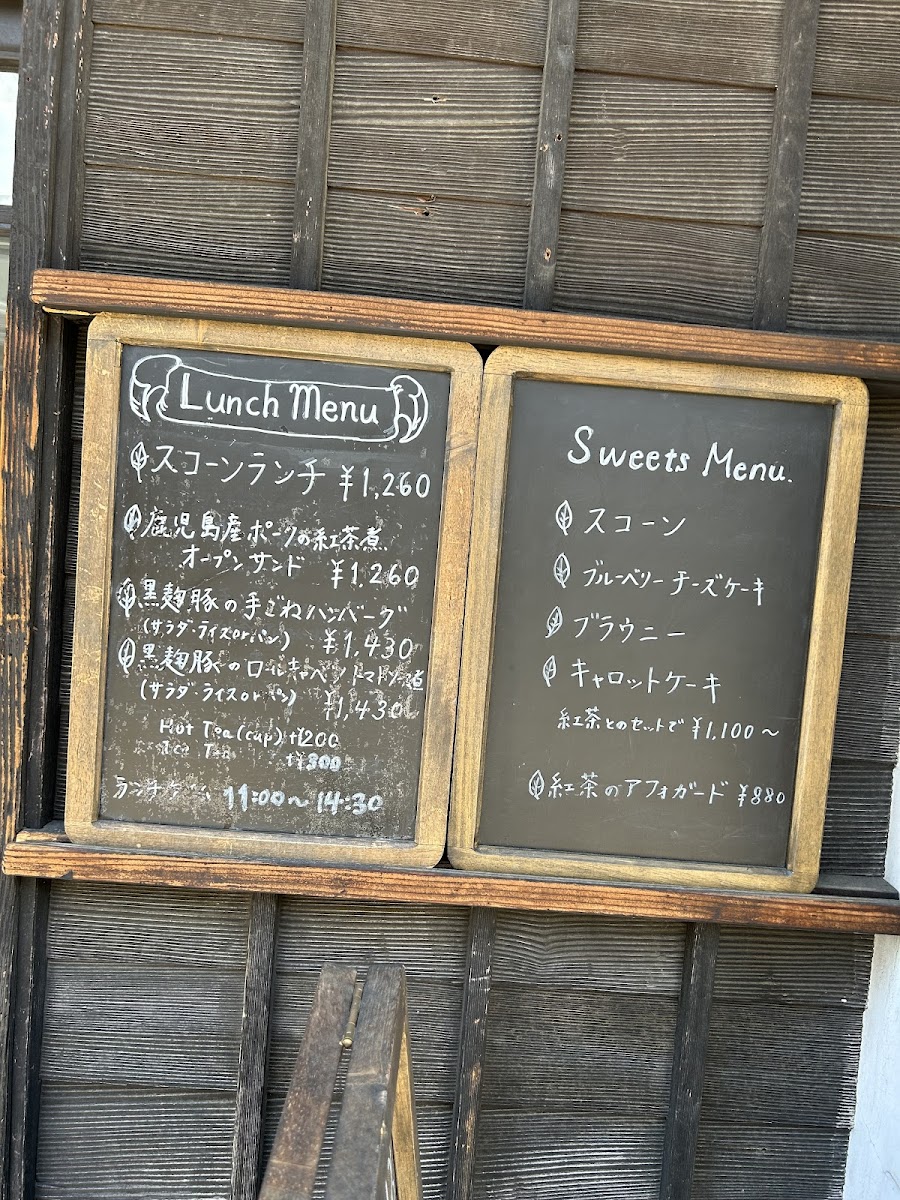 Lunch Menu
スコーンランチ ¥1,260
鹿児島産ポークの紅茶煮
オープンサンド ¥1,260
黒麹豚の手ごねハンバーグ
(サラダ・ライスorパン) ¥1,430
黒麹豚のロールキャベツ トマトソース
(サラダ・ライスorパン) ¥1,430
Hot Tea (cup) +¥200
Ice Tea +¥300
ランチタイム 11:00〜14:30
Sweets Menu.
スコーン
ブルーベリーチーズケーキ
ブラウニー
キャロットケーキ
紅茶とのセットで ¥1,100〜
紅茶のアフォガード ¥880